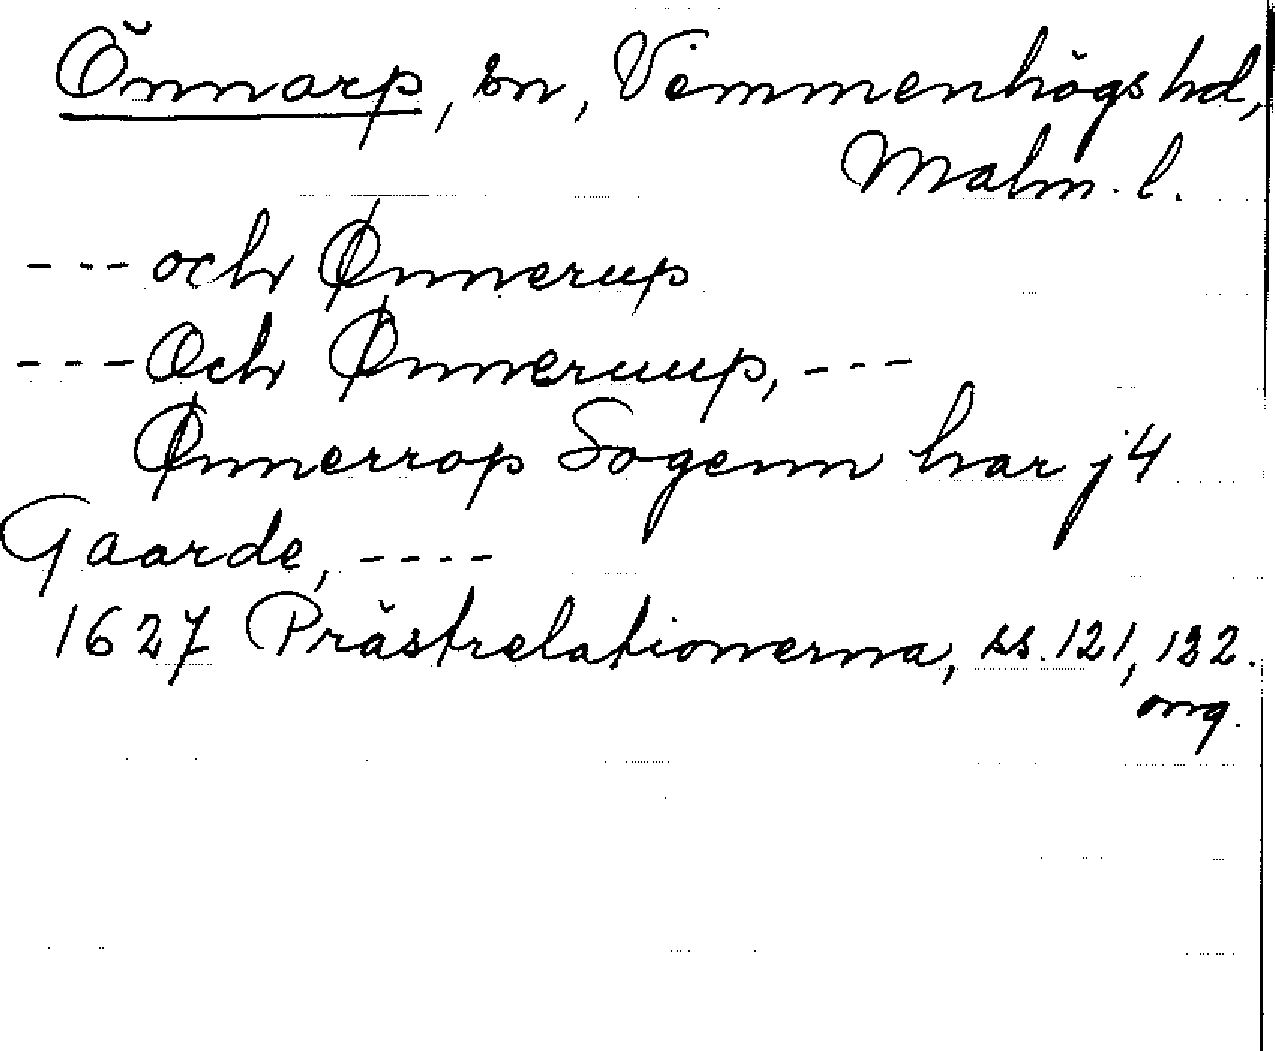 Önnarp, sn, Vemmenhögs hd,
Malm. l.
--- och Ønnerup
--- Och Ønneruup, ---
Ønnerrop Sogenn har j 4
Gaarde, ----
1627 Prästrelationerna, ss. 121, 132.
org.